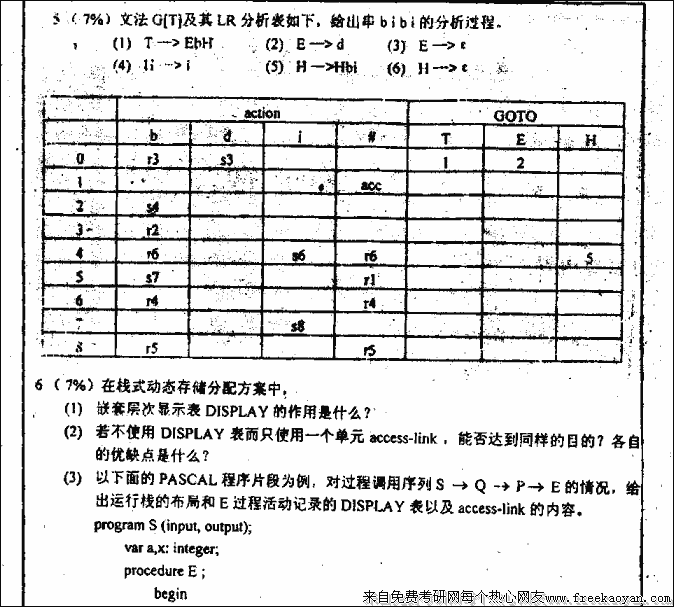 5 ( 7%) 文法 G[T]及其 LR 分析表如下，给出串 b i b i 的分析过程。
(1) T —> EbH (2) E —> d (3) E —> ε
(4) H —> i (5) H —>Hbi (6) H —> ε
action GOTO
b d i # T E H
0 r3 s3 1 2
1 acc
2 s4
3 r2
4 r6 s6 r6 5
5 s7 r1
6 r4 r4
7 s8
8 r5 r5
6 ( 7%) 在栈式动态存储分配方案中，
(1) 嵌套层次显示表 DISPLAY 的作用是什么？
(2) 若不使用 DISPLAY 表而只使用一个单元 access-link ，能否达到同样的目的？各自
的优缺点是什么？
(3) 以下面的 PASCAL 程序片段为例，对过程调用序列 S → Q → P → E 的情况，给
出运行栈的布局和 E 过程活动记录的 DISPLAY 表以及 access-link 的内容。
program S (input, output);
var a,x: integer;
procedure E ;
begin
来自免费考研网每个热心网友www.freekaoyan.com